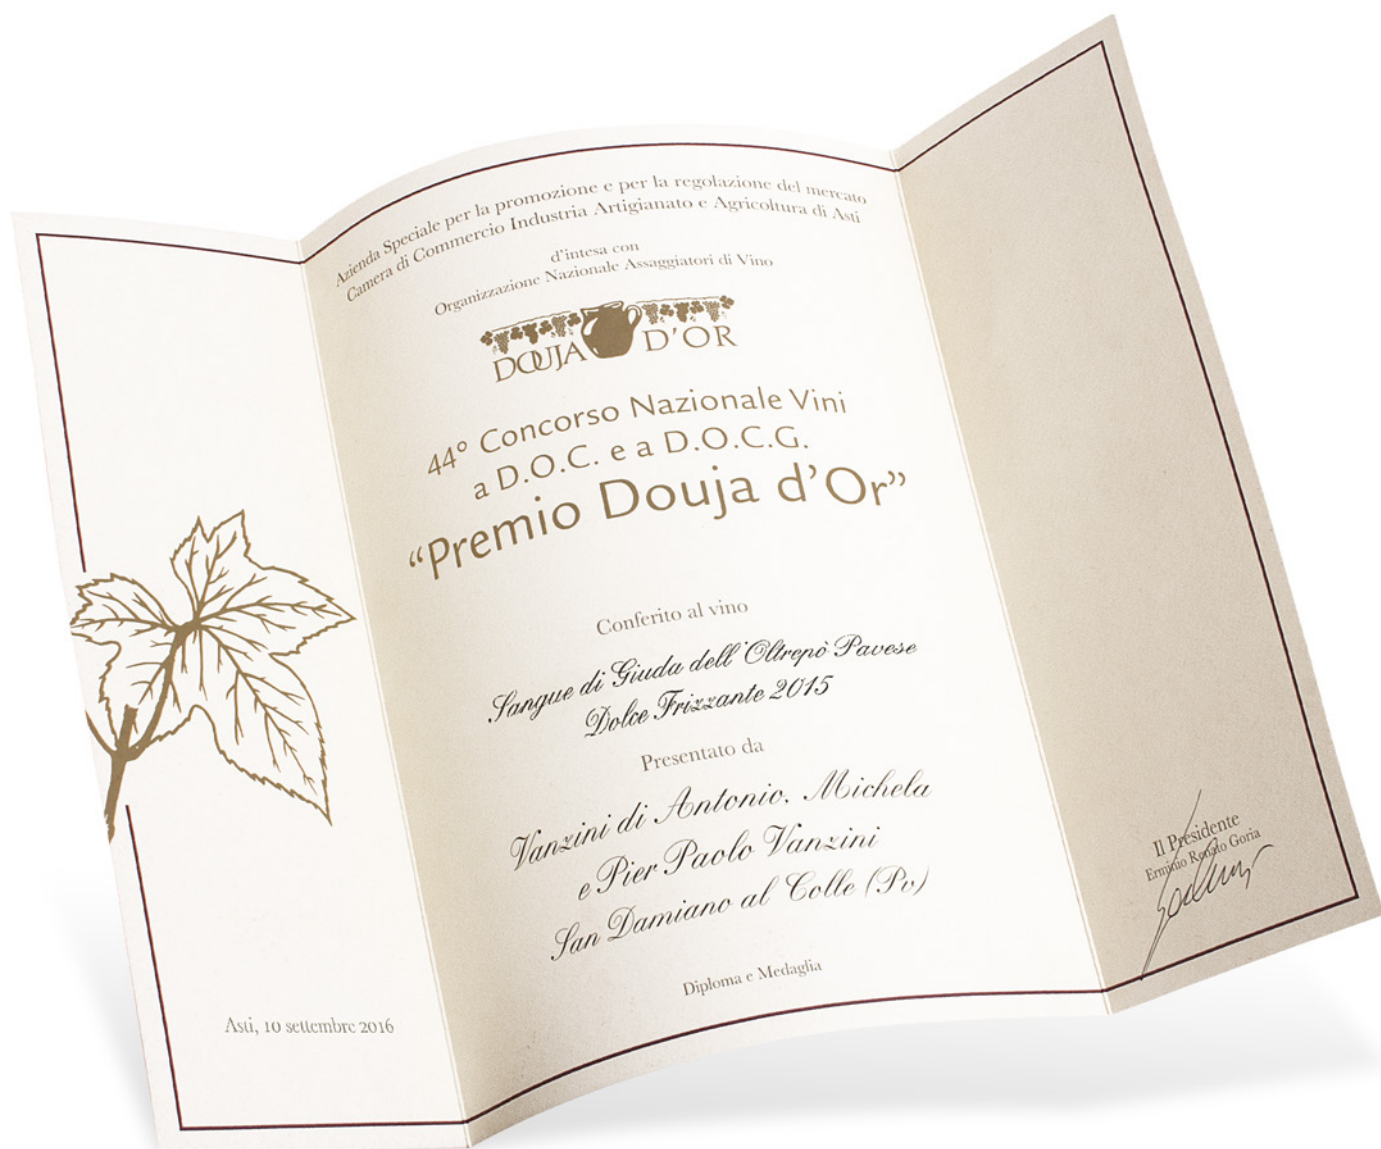 Azienda Speciale per la promozione e per la regolazione del mercato
Camera di Commercio Industria Artigianato e Agricoltura di Asti
d'intesa con
Organizzazione Nazionale Assaggiatori di Vino
DOUJA D'OR
44° Concorso Nazionale Vini
a D.O.C. e a D.O.C.G.
“Premio Douja d'Or”
Conferito al vino
Sangue di Giuda dell'Oltrepò Pavese
Dolce Frizzante 2015
Presentato da
Vanzini di Antonio, Michela
e Pier Paolo Vanzini
San Damiano al Colle (Pv)
Diploma e Medaglia
Asti, 10 settembre 2016
Il Presidente
Erminio Renato Goria